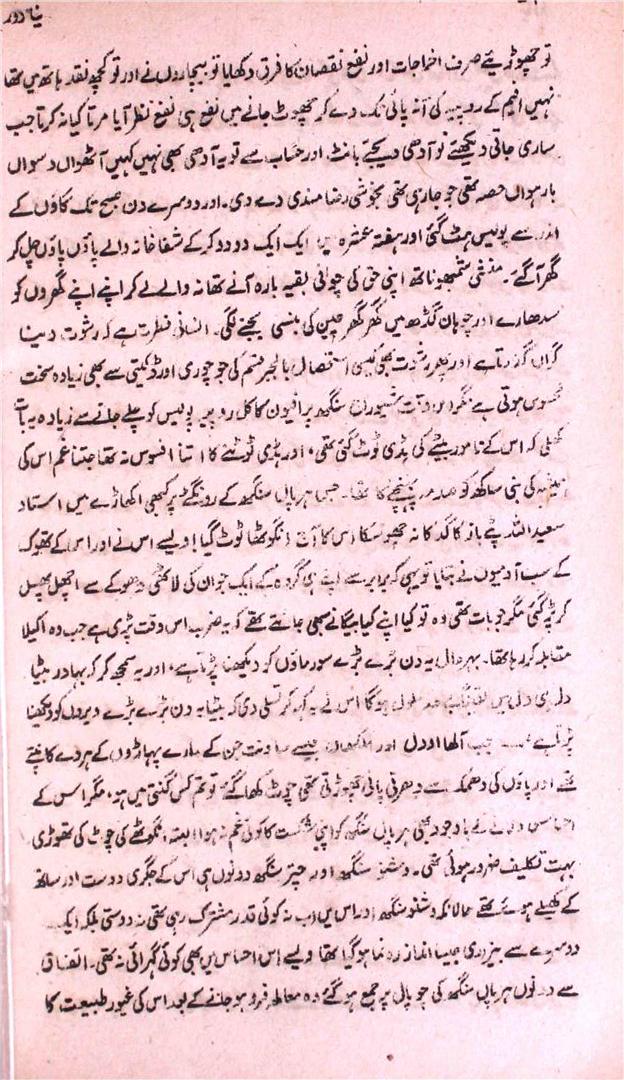 نیا دور
تو چھوڑیئے صرف اخراجات اور نفع نقصان کا فرق دکھلایا تو بیچاروں نے اور تو کچھ نقد ہاتھ میں تھا
نہیں افیم کے روپیہ کی آنہ پائی تک دے کر چھوٹ جانے میں نفع ہی نفع نظر آیا مرتا کیا نہ کرتا جب
ساری جاتی دیکھئے تو آدھی دیجئے بانٹ۔ اور حساب سے تو یہ آدھی بھی نہیں کہیں آٹھواں دسواں
بارہواں حصہ تھی جو جارہی تھی بخوشی رضا مندی دے دی۔ اور دوسرے دن صبح تک گاؤں کے
اندر سے پولیس ہٹ گئی اور ہفتہ عشرہ میں ایک ایک دو دو کر کے شفاخانہ والے پاؤں پاؤں چل کر
گھر آگئے۔ منشی شمبھوناتھ اپنی حق کی چونی بقیہ بارہ آنے تھانہ والے لے کر اپنے اپنے گھروں کو
سدھارے اور چوہان گڈھ میں گھر گھر چین کی بنسی بجنے لگی۔ انسانی فطرت ہے کہ رشوت دینا
گراں گزرتا ہے اور پھر رشوت بھی کیسی استحصال بالجبر قسم کی جو چوری اور ڈکیتی سے بھی زیادہ سخت
محسوس ہوتی ہے مگر اس وقت شیوراج سنگھ پر افیون کا کل روپیہ پولیس کو چلے جانے سے زیادہ یہ بات
کھلی کہ اس کے نامور بیٹے کی ہڈی ٹوٹ گئی تھی، اور ہڈی ٹوٹنے کا اتنا افسوس نہ تھا جتنا غم اس کی
کی بنی ساکھ کو صدمہ پہنچنے کا تھا۔ جس ہرپال سنگھ کے رونگٹے پر کبھی اکھاڑے میں استاد
سعید اللہ پٹے باز کا گدکا نہ چھو سکا اس کا آج انگوٹھا ٹوٹ گیا! ویسے اس نے اور اس کے تھوک
کے سب آدمیوں نے بتایا تو یہی کہ برابر سے اپنے ہی گروہ کے ایک جوان کی لاٹھی دھوکے سے اچھل پھسل
کر پڑ گئی مگر جو بات تھی وہ تو کیا اپنے کیا بیگانے سبھی جانتے تھے کہ یہ ضرب اس وقت پڑی ہے جب وہ اکیلا
مقابلہ کر رہا تھا۔ بہرحال یہ دن بڑے بڑے سورماؤں کو دیکھنا پڑتا ہے، اور یہ سمجھ کر کہ بہادر بیٹا
دل ہی دل میں ملول ہوگا اس نے یہ کہہ کر تسلی دی کہ بیٹا یہ دن بڑے بڑے ویروں کو دیکھنا
پڑتا ہے جب آلھا اودل اور جیسے ساونت جن کے مارے پہاڑوں کے ہردے کانپتے
تھے اور پاؤں کی دھمک سے دھرتی پانی چھوڑتی تھی چوٹ کھا گئے تو تم کس گنتی میں ہو، مگر اس کے
احساس دلانے کے باوجود بھی ہرپال سنگھ کو اپنی شکست کا کوئی غم نہ ہوا البتہ انگوٹھے کی چوٹ کی تھوڑی
بہت تکلیف ضرور ہوئی تھی۔ وشنو سنگھ اور چتر سنگھ دونوں ہی اس کے جگری دوست اور ساتھ
کے کھیلے ہوئے تھے حالانکہ وشنو سنگھ اور اس میں اب نہ کوئی قدر مشترک رہی تھی نہ دوستی بلکہ ایک
دوسرے سے بیزاری جیسا انداز رونما ہو گیا تھا ویسے اس احساس میں بھی کوئی گہرائی نہ تھی۔ اتفاق
سے دونوں ہرپال سنگھ کی چوپال پر جمع ہو گئے وہ معاملہ فرو ہو جانے کے بعد اس کی غیور طبیعت کا